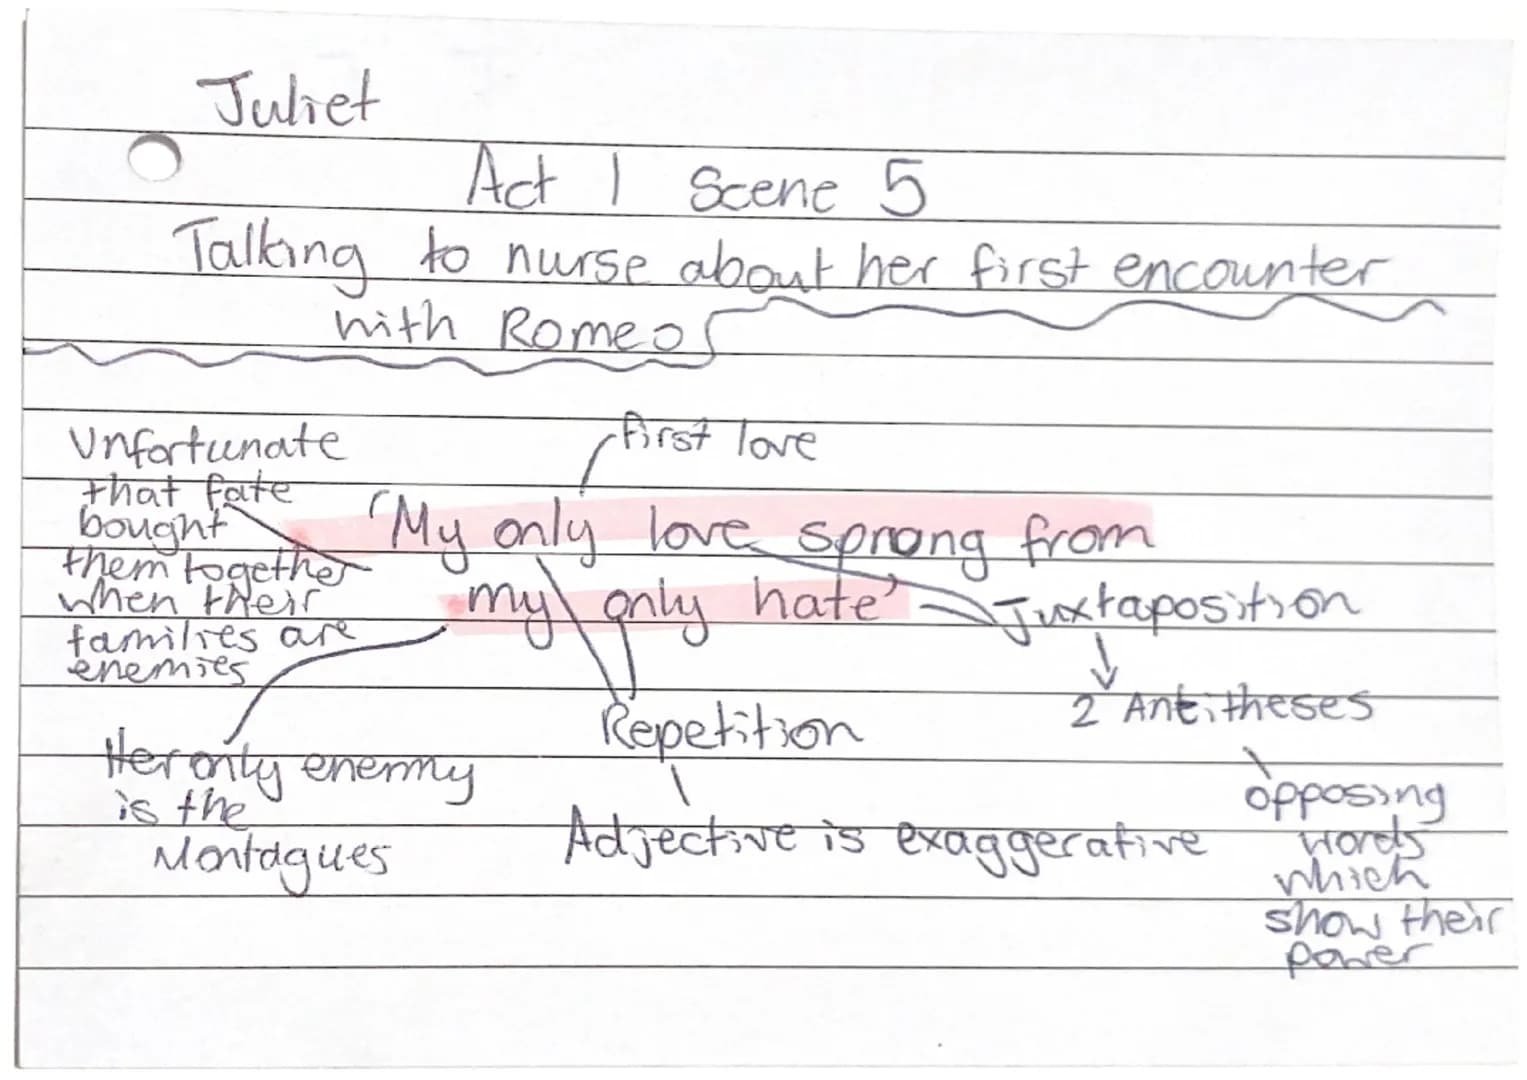 Juliet
Act 1 Scene 5
Talking to nurse about her first encounter
with Romeo
first love
Unfortunate
that fate
bought
them together
when their
families are
enemies
'My only love sprong from
my only hate'
Juxtaposition
2 Antitheses
opposing
words
which
show their
power
Repetition
Adjective is exaggerative
Her only enemy
is the
Montagues